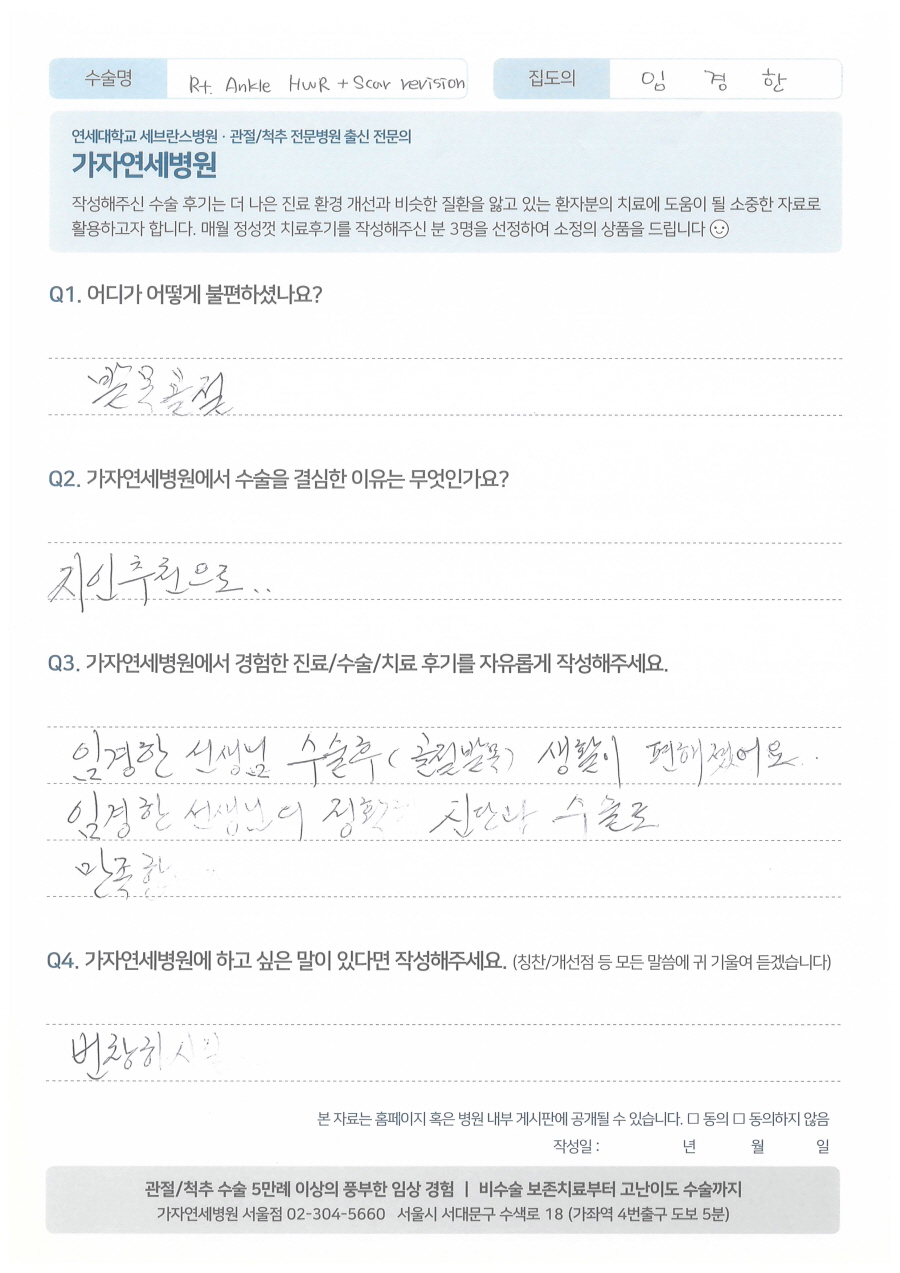 수술명 Rt. Ankle HWR + Scar revision 집도의 임 경 한
연세대학교 세브란스병원 · 관절/척추 전문병원 출신 전문의
가자연세병원
작성해주신 수술 후기는 더 나은 진료 환경 개선과 비슷한 질환을 앓고 있는 환자분의 치료에 도움이 될 소중한 자료로
활용하고자 합니다. 매월 정성껏 치료후기를 작성해주신 분 3명을 선정하여 소정의 상품을 드립니다
Q1. 어디가 어떻게 불편하셨나요?
발목골절
Q2. 가자연세병원에서 수술을 결심한 이유는 무엇인가요?
지인추천으로..
Q3. 가자연세병원에서 경험한 진료/수술/치료 후기를 자유롭게 작성해주세요.
임경한 선생님 수술후(골절발목) 생활이 편해졌어요..
임경한 선생님의 정확한 진단과 수술로
만족함..
Q4. 가자연세병원에 하고 싶은 말이 있다면 작성해주세요. (칭찬/개선점 등 모든 말씀에 귀 기울여 듣겠습니다)
번창하시
본 자료는 홈페이지 혹은 병원 내부 게시판에 공개될 수 있습니다. □ 동의 □ 동의하지 않음
작성일 : 년 월 일
관절/척추 수술 5만례 이상의 풍부한 임상 경험 | 비수술 보존치료부터 고난이도 수술까지
가자연세병원 서울점 02-304-5660 서울시 서대문구 수색로 18 (가좌역 4번출구 도보 5분)